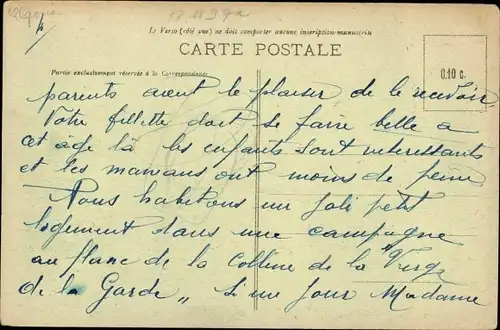 Le Verso (côté vue) ne doit comporter aucune inscription manuscrite
CARTE POSTALE
Partie exclusivement réservée à la Correspondance
0.10 c.
parents aient le plaisir de le recevoir
Votre fillette doit se faire belle a
cet age là les enfants sont interessants
et les mamans ont moins de peine
Nous habitons un joli petit
logement dans une campagne
au flanc de la Colline de la "Vierge
de la Garde" Si un jour Madame